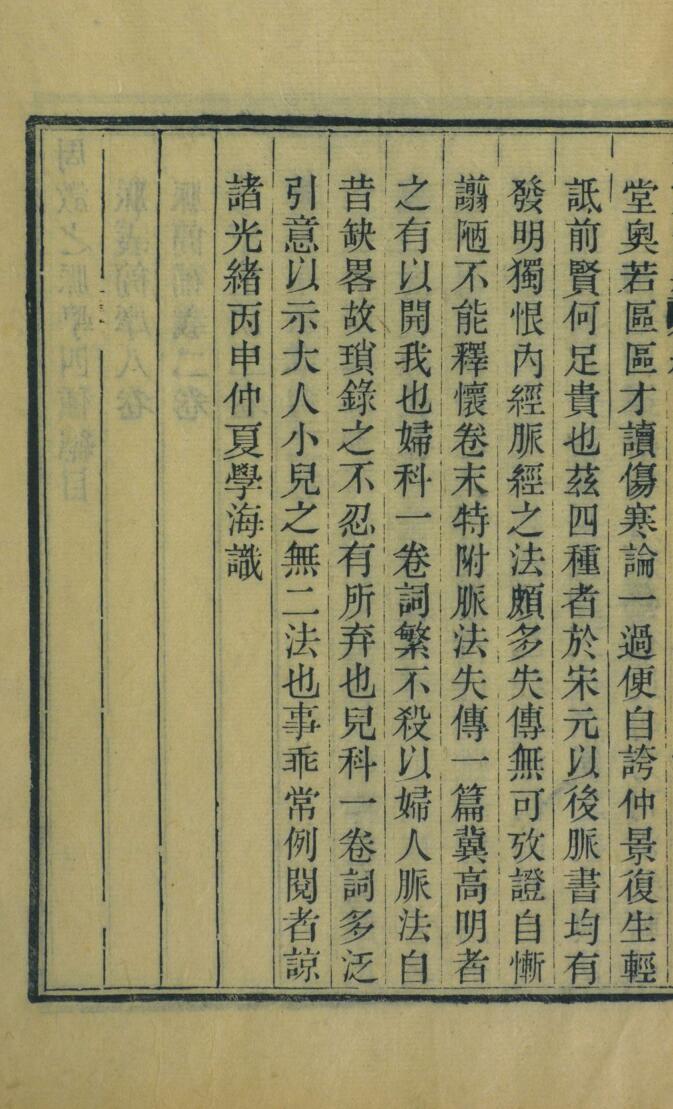 堂奥若區區才讀傷寒論一過便自誇仲景復生輕
詆前賢何足貴也茲四種者於宋元以後脈書均有
發明獨恨內經脈經之法頗多失傳無可攷證自慚
謭陋不能釋懷卷末特附脈法失傳一篇冀高明者
之有以開我也婦科一卷詞繁不殺以婦人脈法自
昔缺畧故瑣錄之不忍有所弃也兒科一卷詞多泛
引意以示大人小兒之無二法也事乖常例閱者諒
諸光緒丙申仲夏學海識